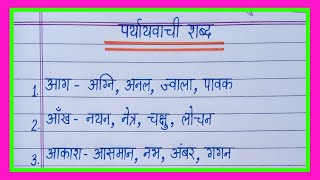 पर्यायवाची शब्द
1. आग - अग्नि, अनल, ज्वाला, पावक
2. आँख - नयन, नेत्र, चक्षु, लोचन
3. आकाश - आसमान, नभ, अंबर, गगन